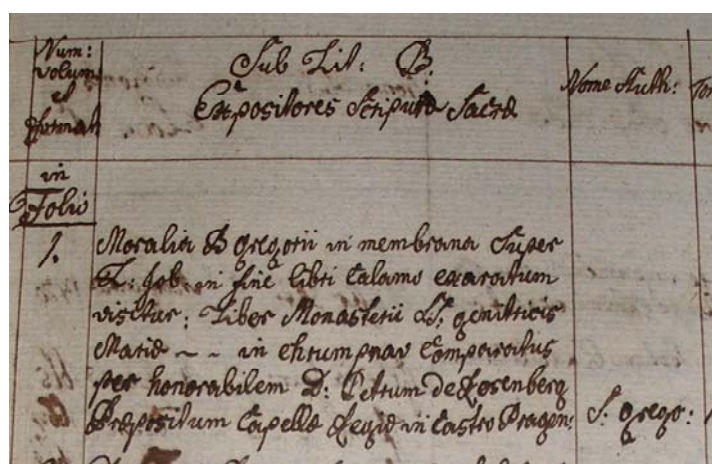 Num:
volum:
et
format
Sub Lit: B.
Expositores Scripturæ Sacræ
Nome Auth:
in
Folio
1. Moralia B Gregorii in membrana Super
L: Job. in fine libri calamo exaratum
visitur: Liber Monasterii S. genitricis
Mariæ ~ ~ in Chrumpnav Comparatus
per honorabilem D: Petrum de Rosenberg
Præpositum Capellæ Regiæ in Castro Pragen: S. Grego: